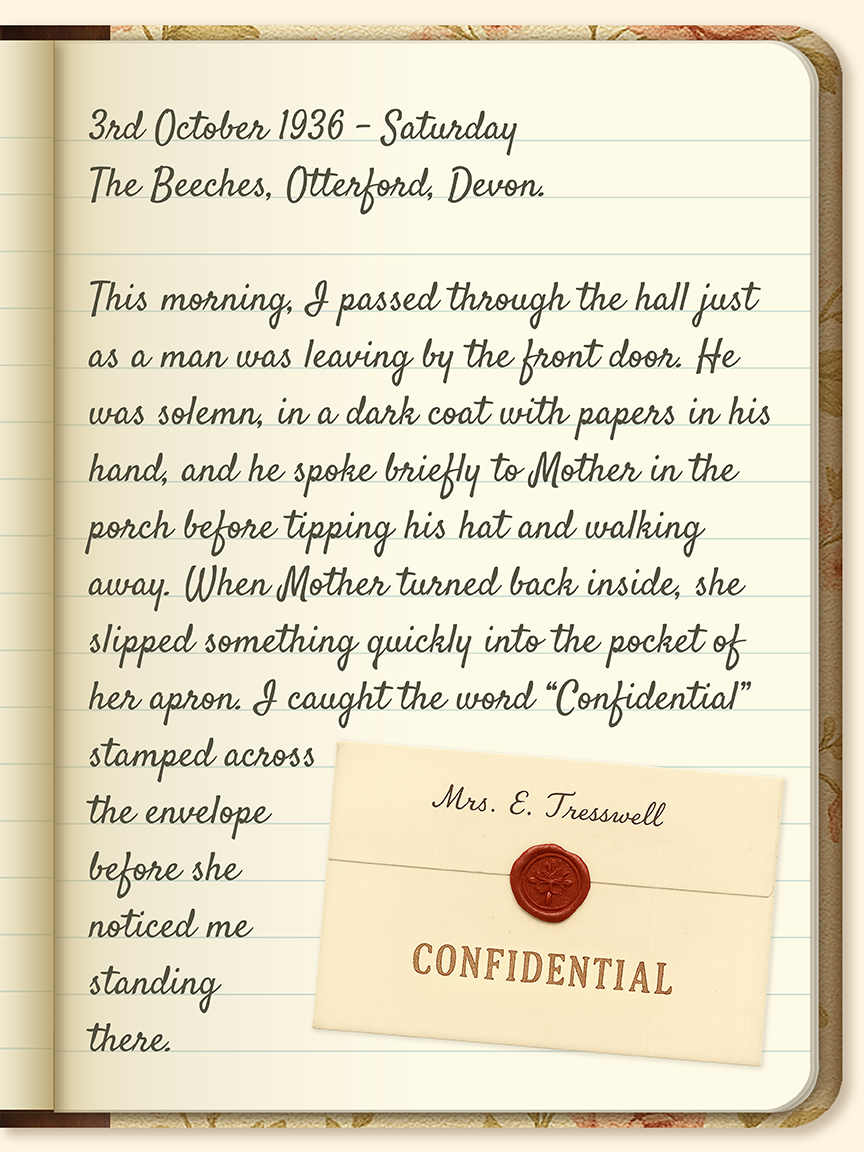 3rd October 1936 – Saturday
The Beeches, Otterford, Devon.
This morning, I passed through the hall just
as a man was leaving by the front door. He
was solemn, in a dark coat with papers in his
hand, and he spoke briefly to Mother in the
porch before tipping his hat and walking
away. When Mother turned back inside, she
slipped something quickly into the pocket of
her apron. I caught the word “Confidential”
stamped across
the envelope
before she
noticed me
standing
there.
Mrs. E. Tresswell
CONFIDENTIAL